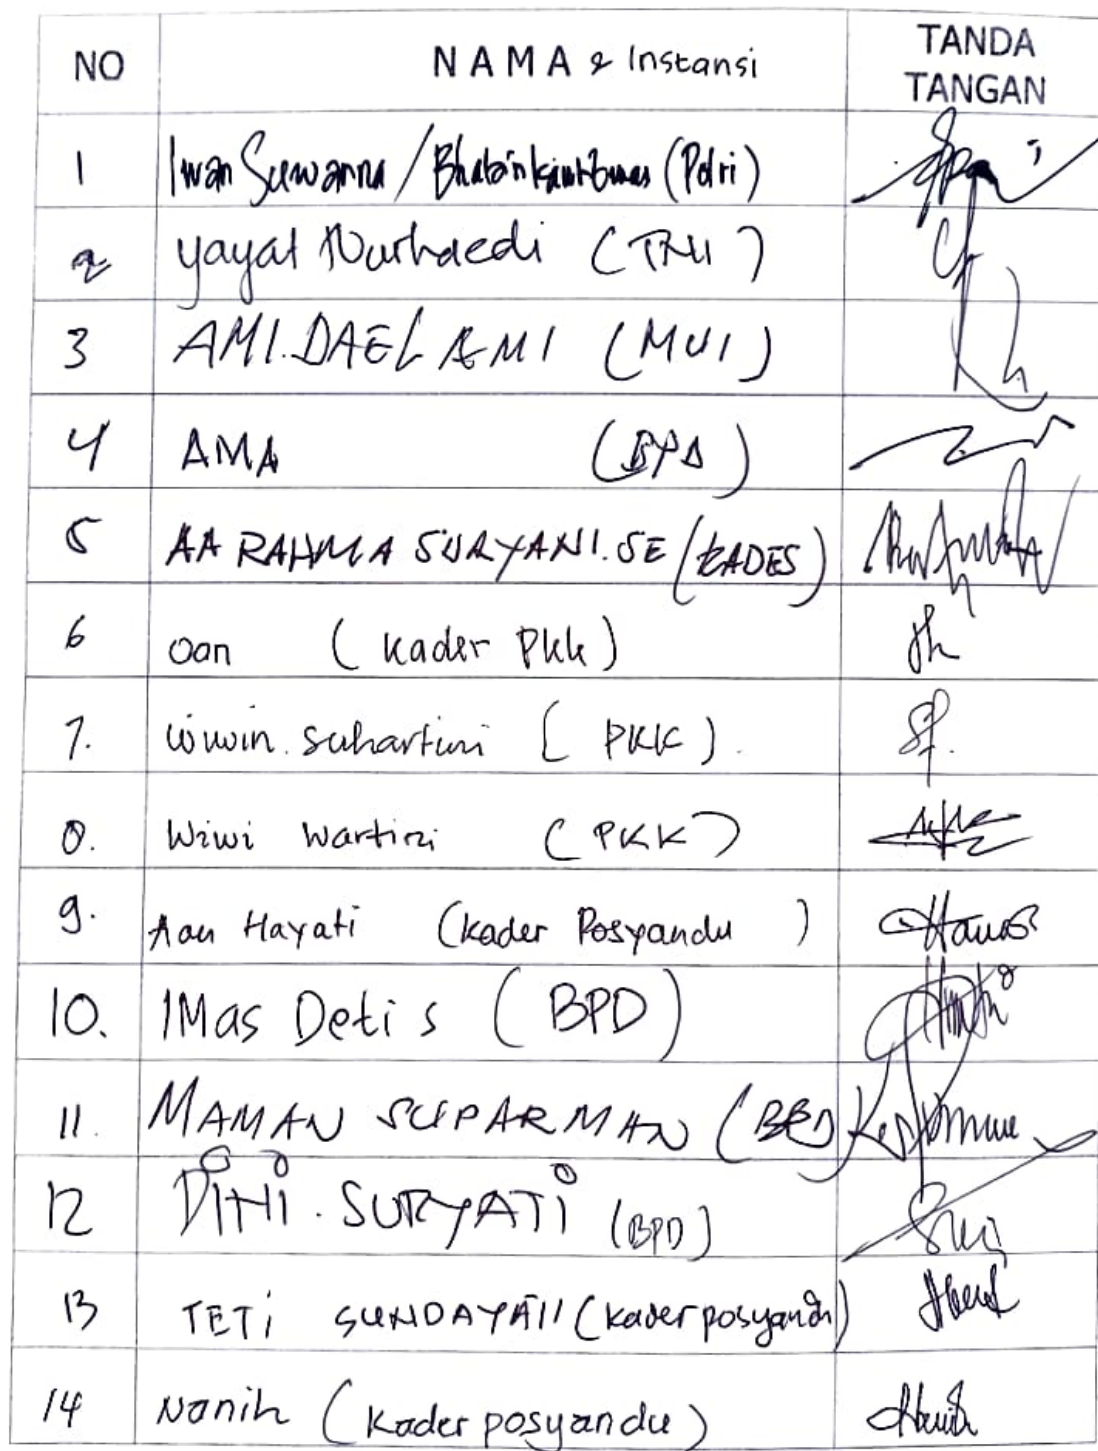 NO NAMA & Instansi TANDA TANGAN
1 Iwan Suwanna / Bhabinkamtibmas (Polri)
2 yayat Nurhaedi (TNI)
3 AMI.DAELAMI (MUI)
4 AMA (BPD)
5 AA RAHMA SURYANI.SE (KADES)
6 oan (kader Pkk)
7. wiwin. suhartini [ PKK ).
8. Wiwi wartini (PKK)
9. Aan Hayati (kader Posyandu )
10. IMas Deti s (BPD)
11. MAMAN SUPARMAN (BPD)
12 DINI. SURYATI (BPD)
13 TETI SUNDAYATI (kader posyandu)
14 Nanih (kader posyandu)